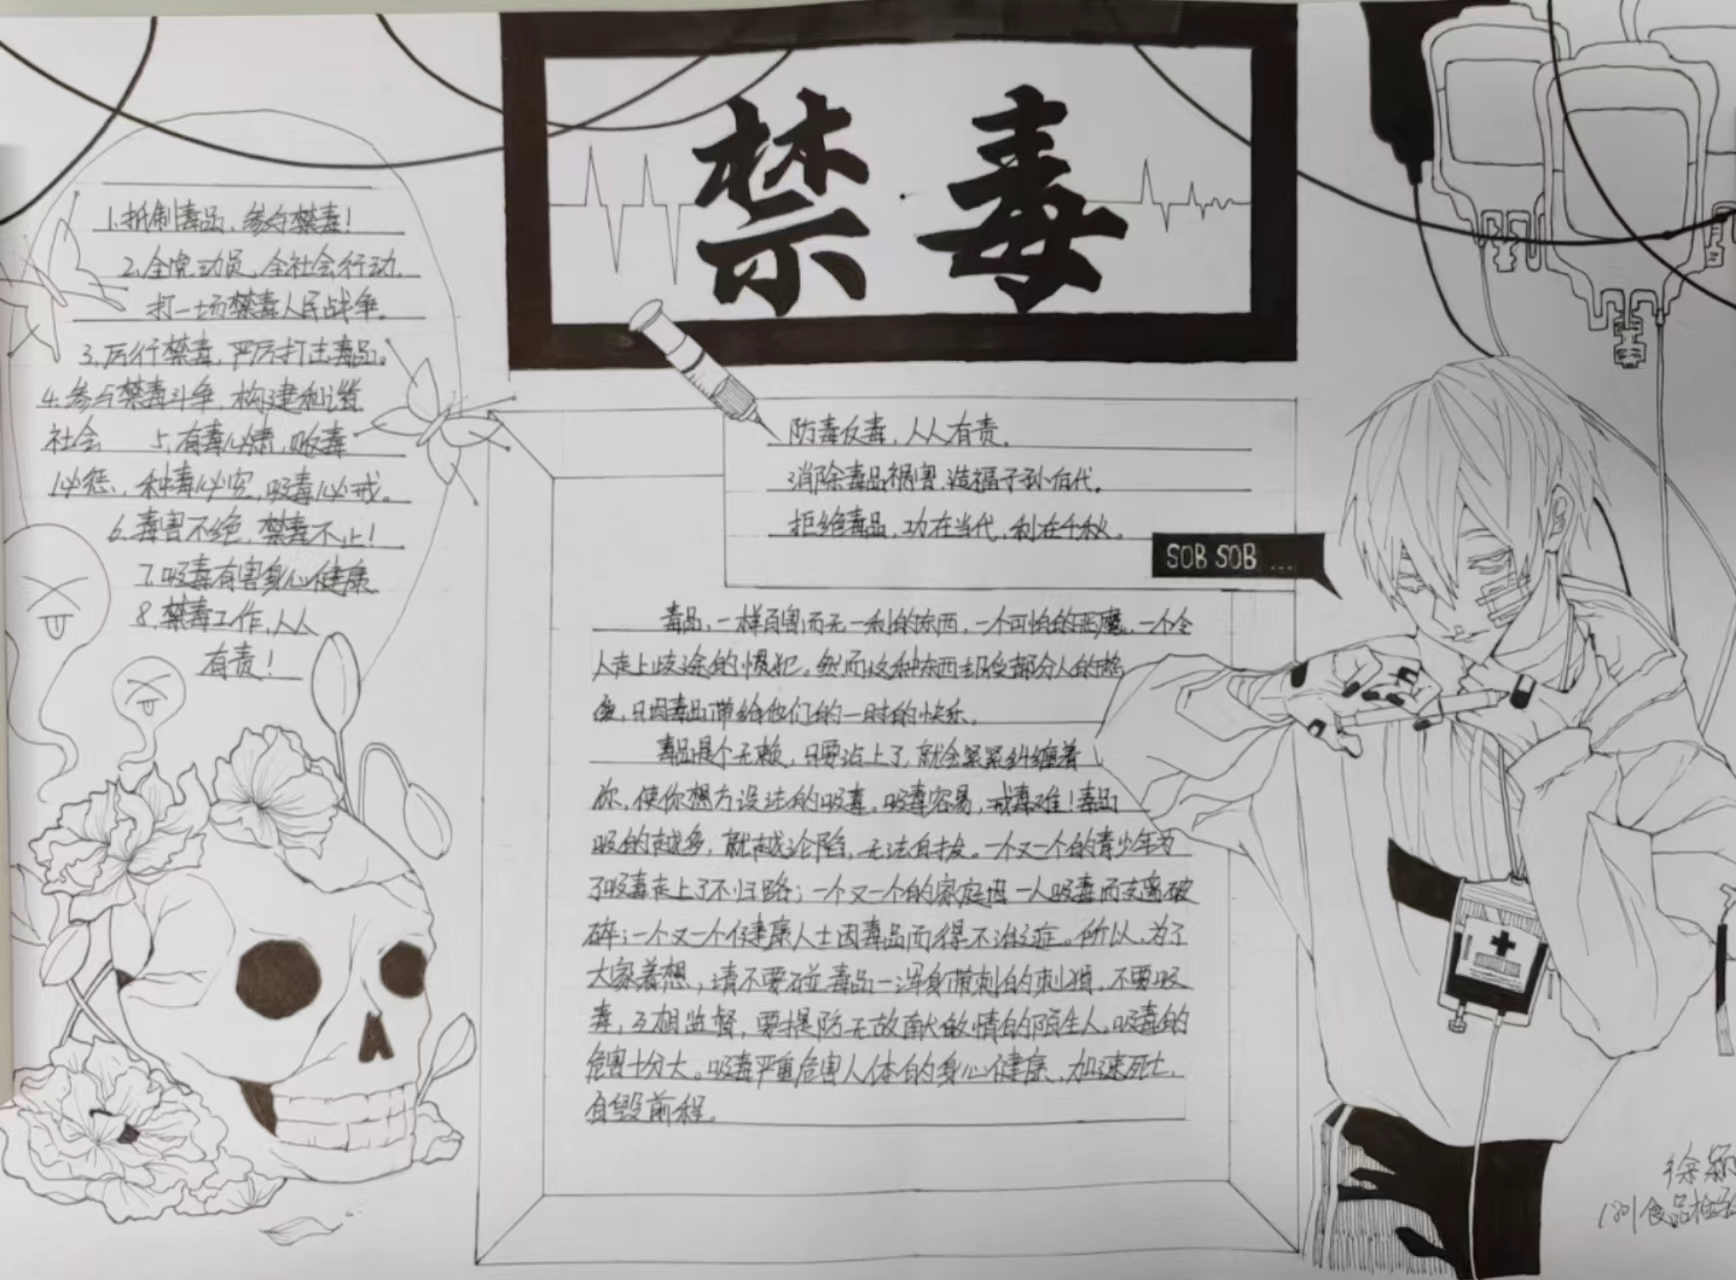 禁毒
1.抵制毒品,参与禁毒!
2.全党动员,全社会行动,
打一场禁毒人民战争。
3.厉行禁毒,严厉打击毒品。
4.参与禁毒斗争,构建和谐
社会 5.有毒必肃,贩毒
必惩,种毒必究,吸毒必戒。
6.毒害不绝,禁毒不止!
7.吸毒有害身心健康
8.禁毒工作,人人
有责!
防毒反毒,人人有责。
消除毒品祸害,造福子孙后代。
拒绝毒品,功在当代,利在千秋。
SOB SOB ...
毒品,一样百害而无一利的东西,一个可怕的恶魔,一个令
人走上歧途的惯犯。然而这种东西却受部分人的酷
爱,只因毒品带给他们的一时的快乐。
毒品是个无赖,只要沾上了,就会紧紧纠缠着
你,使你想方设法的吸毒。吸毒容易,戒毒难!毒品
吸的越多,就越沦陷,无法自拔。一个又一个的青少年为
了吸毒走上了不归路;一个又一个的家庭因一人吸毒而支离破
碎;一个又一个健康人士因毒品而得不治之症。所以,为了
大家着想,请不要碰毒品—浑身带刺的刺猬,不要吸
毒,互相监督,要提防无故献殷情的陌生人。吸毒的
危害十分大。吸毒严重危害人体的身心健康、加速死亡,
自毁前程。
徐颖
1801食品